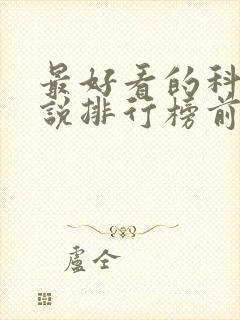 最好看的科
说排行榜前
卢仝